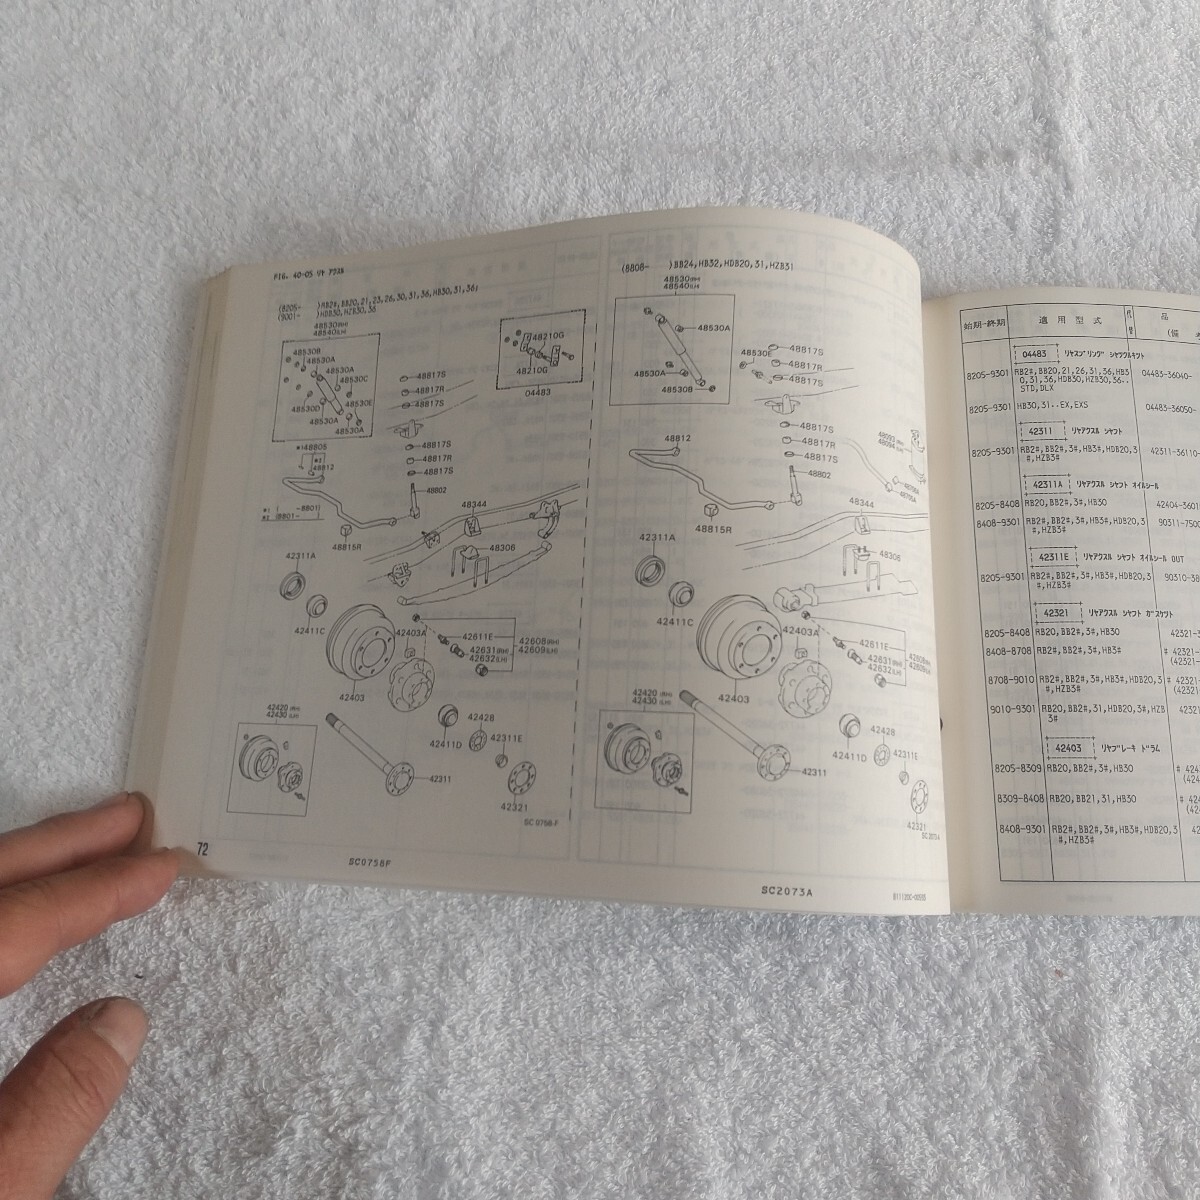 FIG. 40-05 リヤ アクスル
(8205-    )RB2#,BB20,21,23,26,30,31,36,HB30,31,36;
(9001-    )HDB30,HZB30,36
48530(RH)
48540(LH)
48530B
48530A
48530A
48530C
48530D
48530E
48530A
48530A
48210G
48210G
04483
48817S
48817R
48817S
*1 48805
*2
48812
48817S
48817R
48817S
48802
*1 (    -8801)
*2 (8801-    )
48815R
48344
48306
42311A
42411C
42403A
42611E
42631(RH)
42632(LH)
42608(RH)
42609(LH)
42403
42420 (RH)
42430 (LH)
42411D
42428
42311E
42311
42321
SC 0758-F
72
SC0758F
(8808-    )BB24,HB32,HDB20,31,HZB31
48530(RH)
48540(LH)
48530A
48530A
48530B
48530E
48817S
48817R
48817S
48812
48817S
48817R
48817S
48802
48815R
48344
48306
42311A
42411C
42403A
42611E
42631(RH)
42632(LH)
42608(RH)
42609(LH)
42403
42420 (RH)
42430 (LH)
42411D
42428
42311E
42311
42321
SC2073A
始期-終期 適 用 型 式 品
04483 リヤスプリング シヤツクルキツト
8205-9301 RB2#,BB20,21,26,31,36,HB3 04483-36040-
0,31,36,HDB30,HZB30,36..
STD,DLX
8205-9301 HB30,31..EX,EXS 04483-36050-
42311 リヤアクスル シヤフト
8205-9301 RB2#,BB2#,3#,HB3#,HDB20,3 42311-36110-
#,HZB3#
42311A リヤアクスル シヤフト オイルシール
8205-8408 RB20,BB2#,3#,HB30 42404-3601
8408-9301 RB2#,BB2#,3#,HB3#,HDB20,3 90311-7500
#,HZB3#
42311E リヤアクスル シヤフト オイルシール OUT
8205-9301 RB2#,BB2#,3#,HB3#,HDB20,3 90310-38
#,HZB3#
42321 リヤアクスル シヤフト ガスケツト
8205-8408 RB20,BB2#,3#,HB30 42321-3
8408-8708 RB2#,BB2#,3#,HB3# # 42321-
(42321-
8708-9010 RB2#,BB2#,3#,HB3#,HDB20,3 # 42321-
#,HZB3# (42321-
9010-9301 RB20,BB2#,31,HDB20,3#,HZB 42321
3#
42403 リヤブレーキ ドラム
8205-8309 RB20,BB2#,3#,HB30 # 424
(424
8309-8408 RB20,BB21,31,HB30 # 424
(42
8408-9301 RB2#,BB2#,3#,HB3#,HDB20,3 42
#,HZB3#